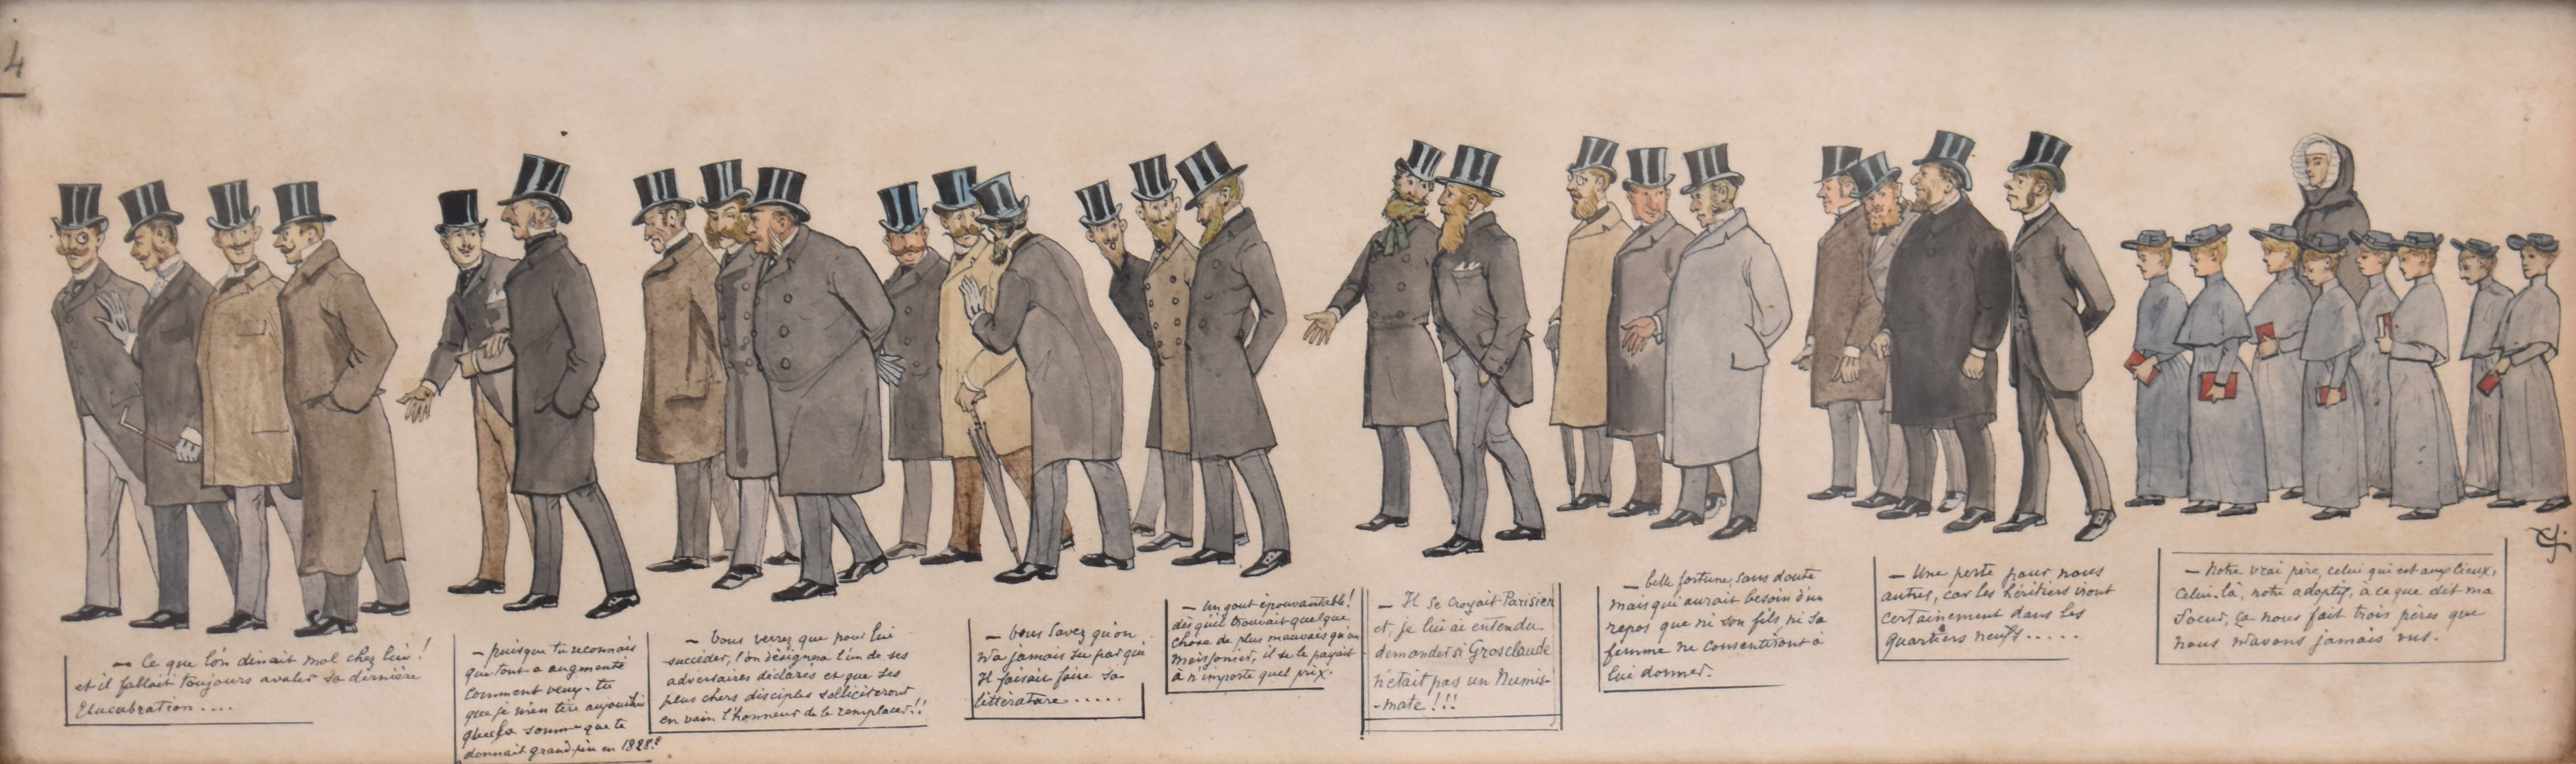 4
— Ce que l'on dinait mal chez lui !
et il fallait toujours avaler sa dernière
Elucubration....
— puisque tu reconnais
que tout a augmenté
comment veux-tu
que je m'en tire aujourd'hui
avec la somme que te
donnait grand-père en 1828 ?
— Vous verrez que pour lui
succéder, l'on désignera l'un de ses
adversaires déclarés et que ses
plus chers disciples solliciteront
en vain l'honneur de le remplacer !!
— Vous savez qu'on
n'a jamais su par qui
Il faisait faire sa
littérature.....
— Un gout épouvantable !
dès qu'il trouvait quelque
chose de plus mauvais qu'un
meissonier, il se le payait
à n'importe quel prix.
— Il se croyait Parisien
et je lui ai entendu
demander si Grosclaude
n'était pas un Numis-
-mate !!!
— belle fortune, sans doute
mais qui aurait besoin d'un
repos que ni son fils ni sa
femme ne consentiront à
lui donner.
— Une perte pour nous
autres, car les héritiers iront
certainement dans les
quartiers neufs.....
— Notre vrai père, celui qui est aux cieux,
celui-là, notre adoptif, à ce que dit ma
Soeur, ça nous fait trois pères que
nous n'avons jamais vus.